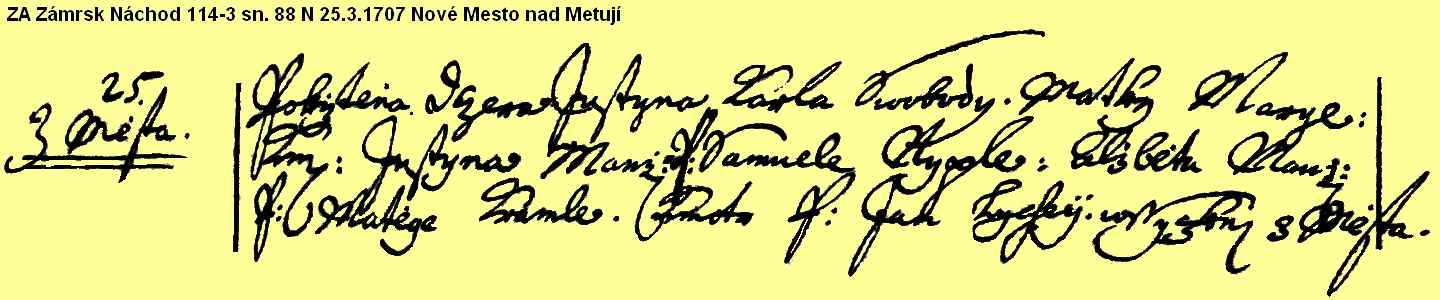 ZA Zámrsk Náchod 114-3 sn. 88 N 25.3.1707 Nové Mesto nad Metují
25.
z Města.
Pokřtěna. Dcera Justyna Karla Swobody. Matky Marye:
Km: Justyna Manž: P: Samuele Alžběta Manž:
P: Matěge Kmotr P: Jan wssyckni z Města.